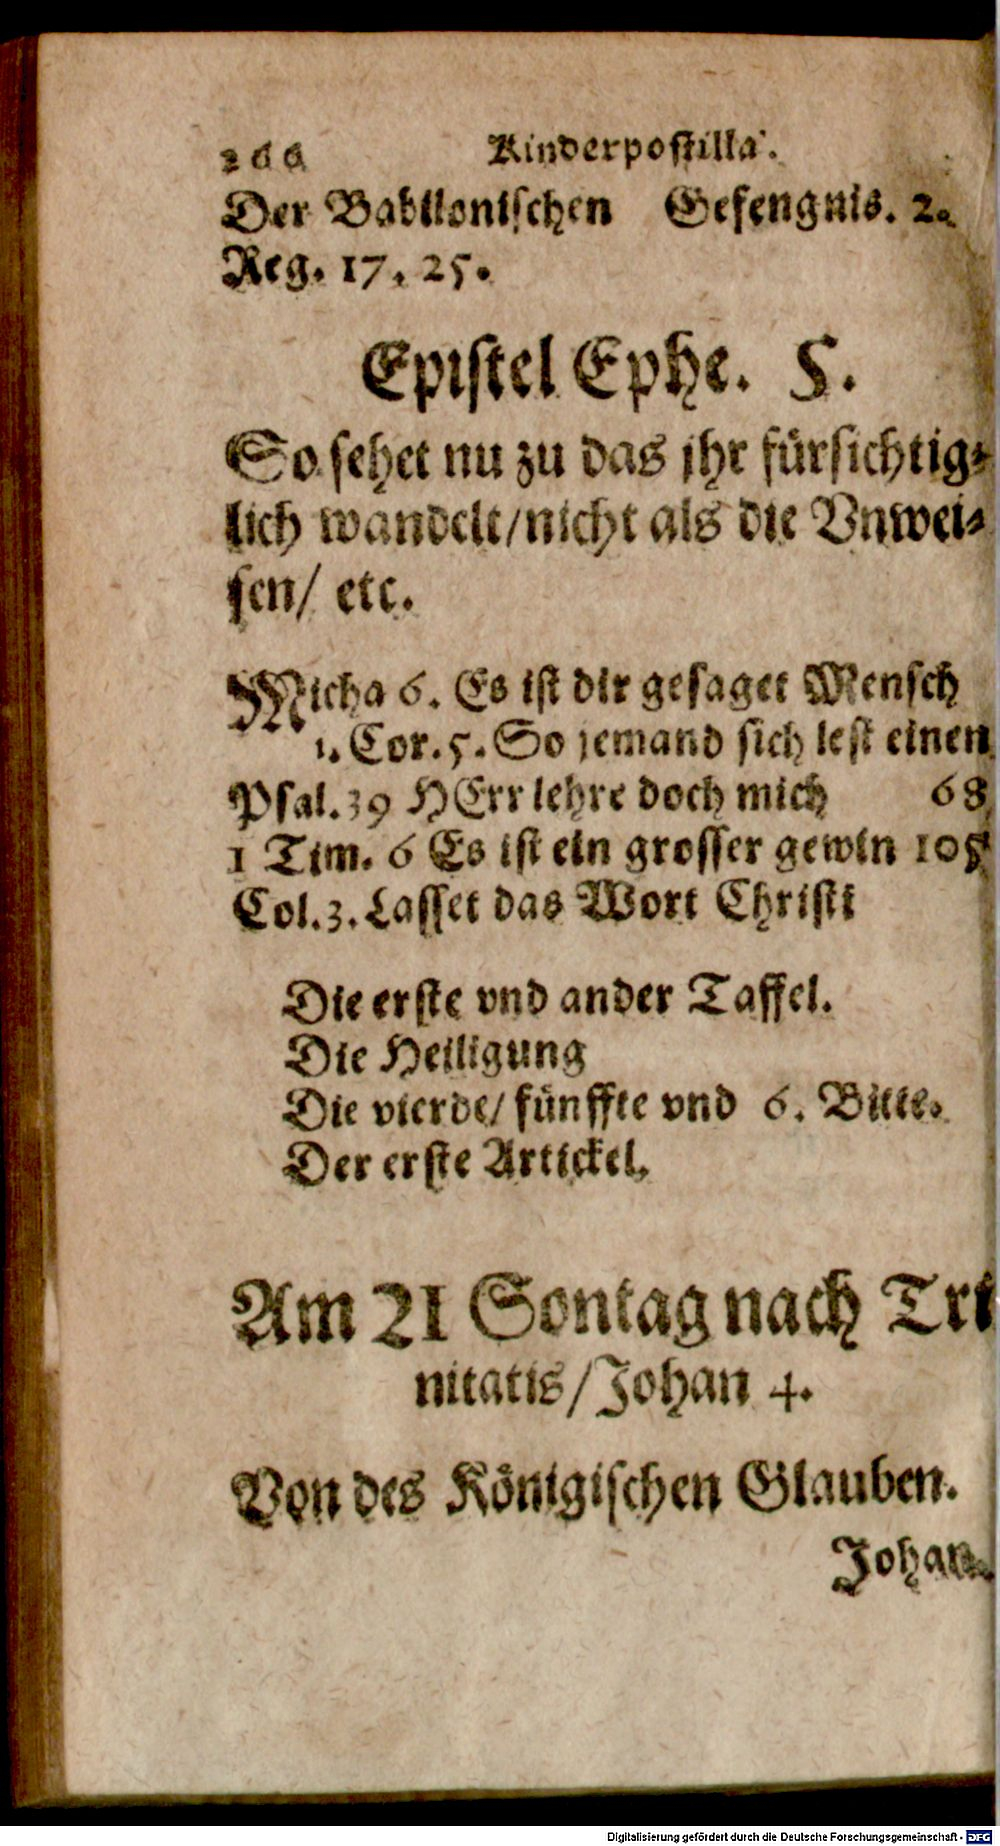 266 Kinderpostilla.
Der Babilonischen Gefengnis. 2.
Reg. 17. 25.
Epistel Ephe. 5.
So sehet nu zu das jhr fürsichtig⸗
lich wandelt/nicht als die Vnwei⸗
sen/ etc.
Micha 6. Es ist dir gesaget Mensch
1. Cor. 5. So jemand sich lest einen
Psal. 39 HErr lehre doch mich 68
1 Tim. 6 Es ist ein grosser gewin 105
Col. 3. Lasset das Wort Christi
Die erste vnd ander Taffel.
Die Heiligung
Die vierde/ fünffte vnd 6. Bitte.
Der erste Artickel.
Am 21 Sontag nach Tri
nitatis/Johan 4.
Von des Königischen Glauben.
Johan.
Digitalisierung gefördert durch die Deutsche Forschungsgemeinschaft - DFG